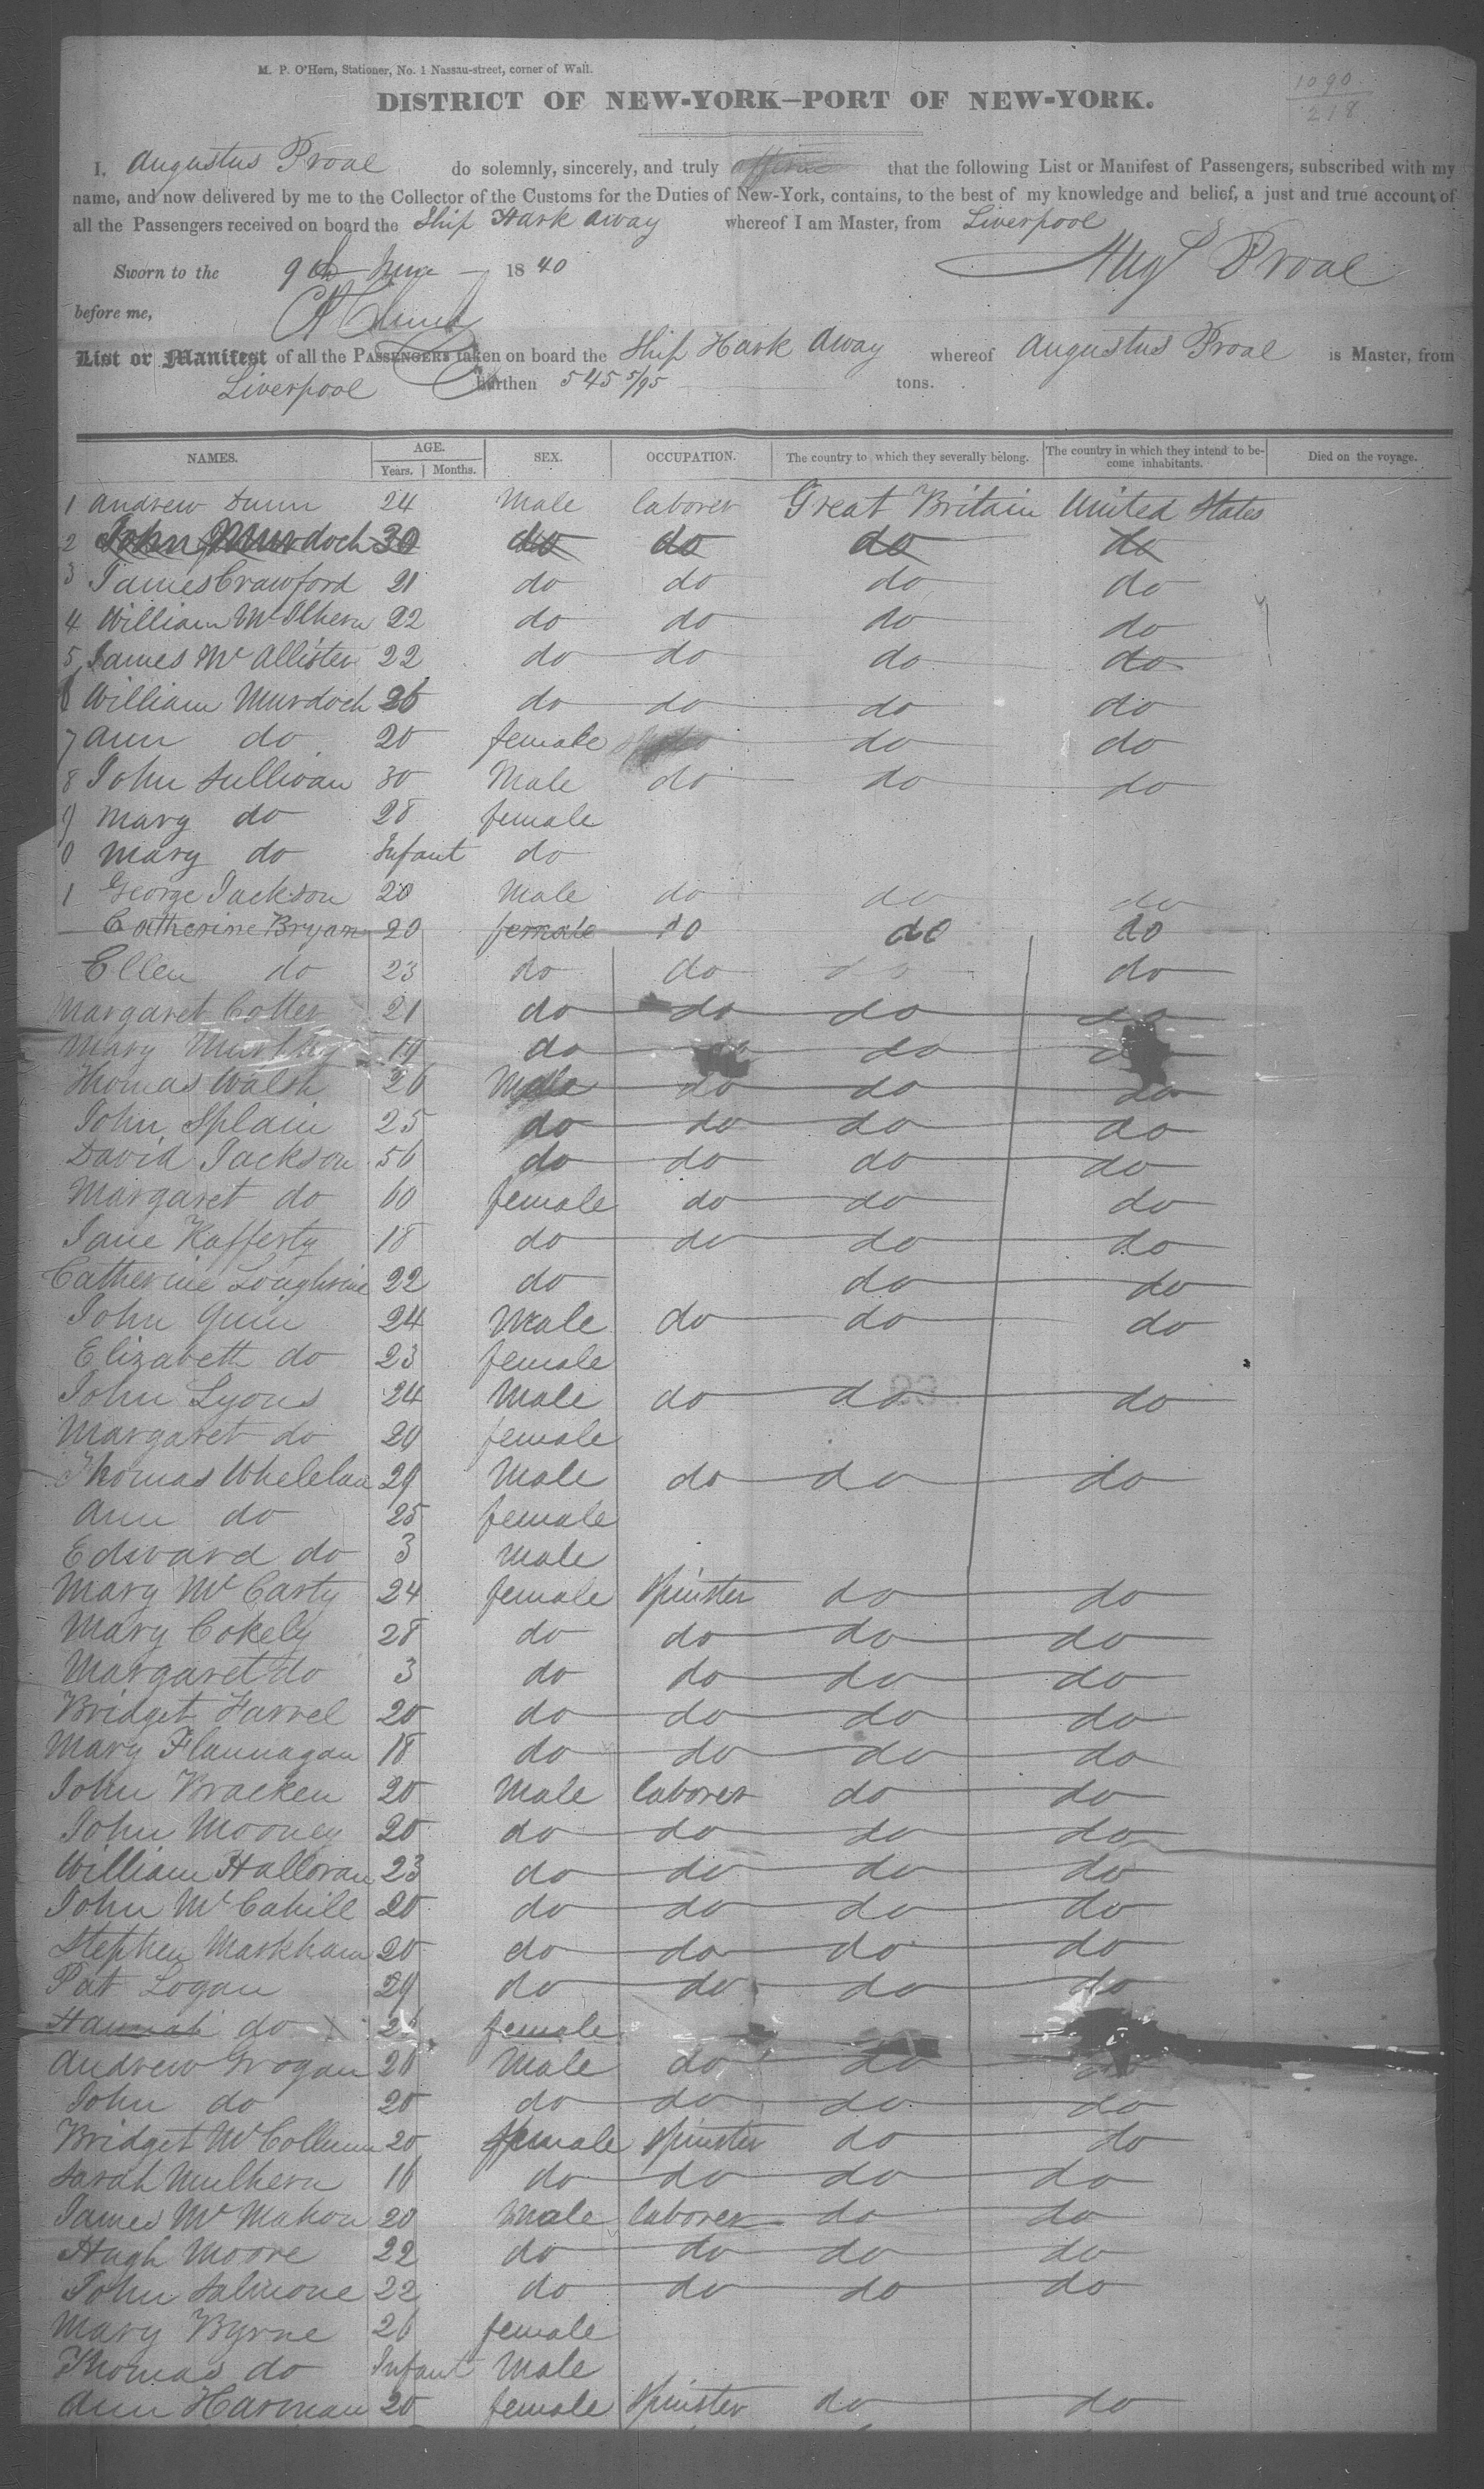 M. P. O'Hern, Stationer, No. 1 Nassau-street, corner of Wall.
1090
218
DISTRICT OF NEW-YORK—PORT OF NEW-YORK.
I, Augustus Proal do solemnly, sincerely, and truly affirm that the following List or Manifest of Passengers, subscribed with my
name, and now delivered by me to the Collector of the Customs for the Duties of New-York, contains, to the best of my knowledge and belief, a just and true account of
all the Passengers received on board the Ship Hark away whereof I am Master, from Liverpool
Sworn to the 9th June 1840 Augs Proal
before me,
List or Manifest of all the PASSENGERS taken on board the Ship Hark Away whereof Augustus Proal is Master, from
Liverpool burthen 545 5/95 tons.
NAMES. AGE. Years. Months. SEX. OCCUPATION. The country to which they severally belong. The country in which they intend to become inhabitants. Died on the voyage.
1 Andrew Dunn 24 Male laborer Great Britain United States
2 John Murdoch 30 do do do do
3 James Crawford 21 do do do do
4 William McIlhern 22 do do do do
5 James McAllister 22 do do do do
6 William Murdoch 26 do do do do
7 Ann do 20 female do do
8 John Sullivan 30 Male do do do
9 Mary do 28 female
0 Mary do Infant do
1 George Jackson 20 Male do do do
Catherine Bryan 20 female do do do
Ellen do 23 do do do do
Margaret Cotter 21 do do do do
Mary Murthy 19 do do do do
Thomas Walsh 26 Male do do do
John Splain 25 do do do do
David Jackson 56 do do do do
Margaret do 60 female do do do
Jane Rafferty 18 do do do do
Catherine 22 do do do
John Quin 24 Male do do do
Elizabeth do 23 female
John Lyons 24 Male do do do
Margaret do 20 female
Thomas Whelelan 29 Male do do do
Ann do 25 female
Edward do 3 Male
Mary McCarty 24 female Spinster do do
Mary Cokely 28 do do do do
Margaret do 3 do do do do
Bridget Farrel 20 do do do do
Mary Flannagan 18 do do do do
John Bracken 20 Male laborer do do
John Mooney 20 do do do do
William Halloran 23 do do do do
John McCahill 20 do do do do
Stephen Markham 20 do do do do
Pat Logan 29 do do do do
Hannah do 26 female
Andrew Grogan 26 Male do do do
John do 20 do do do do
Bridget McCollum 20 female Spinster do do
Sarah Mulhern 16 do do do do
James McMahon 20 Male laborer do do
Hugh Moore 22 do do do do
John Salmone 22 do do do do
Mary Byrne 26 female
Thomas do Infant Male
Ann Harman 20 female Spinster do do